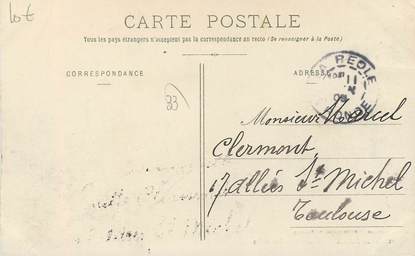 lot
CARTE POSTALE
Tous les pays étrangers n'acceptent pas la correspondance au recto (Se renseigner à la Poste)
CORRESPONDANCE
ADRESSE
LA REOLE
11
09
GIRONDE
33
Monsieur Marcel
Clermont
17 allées St Michel
Toulouse